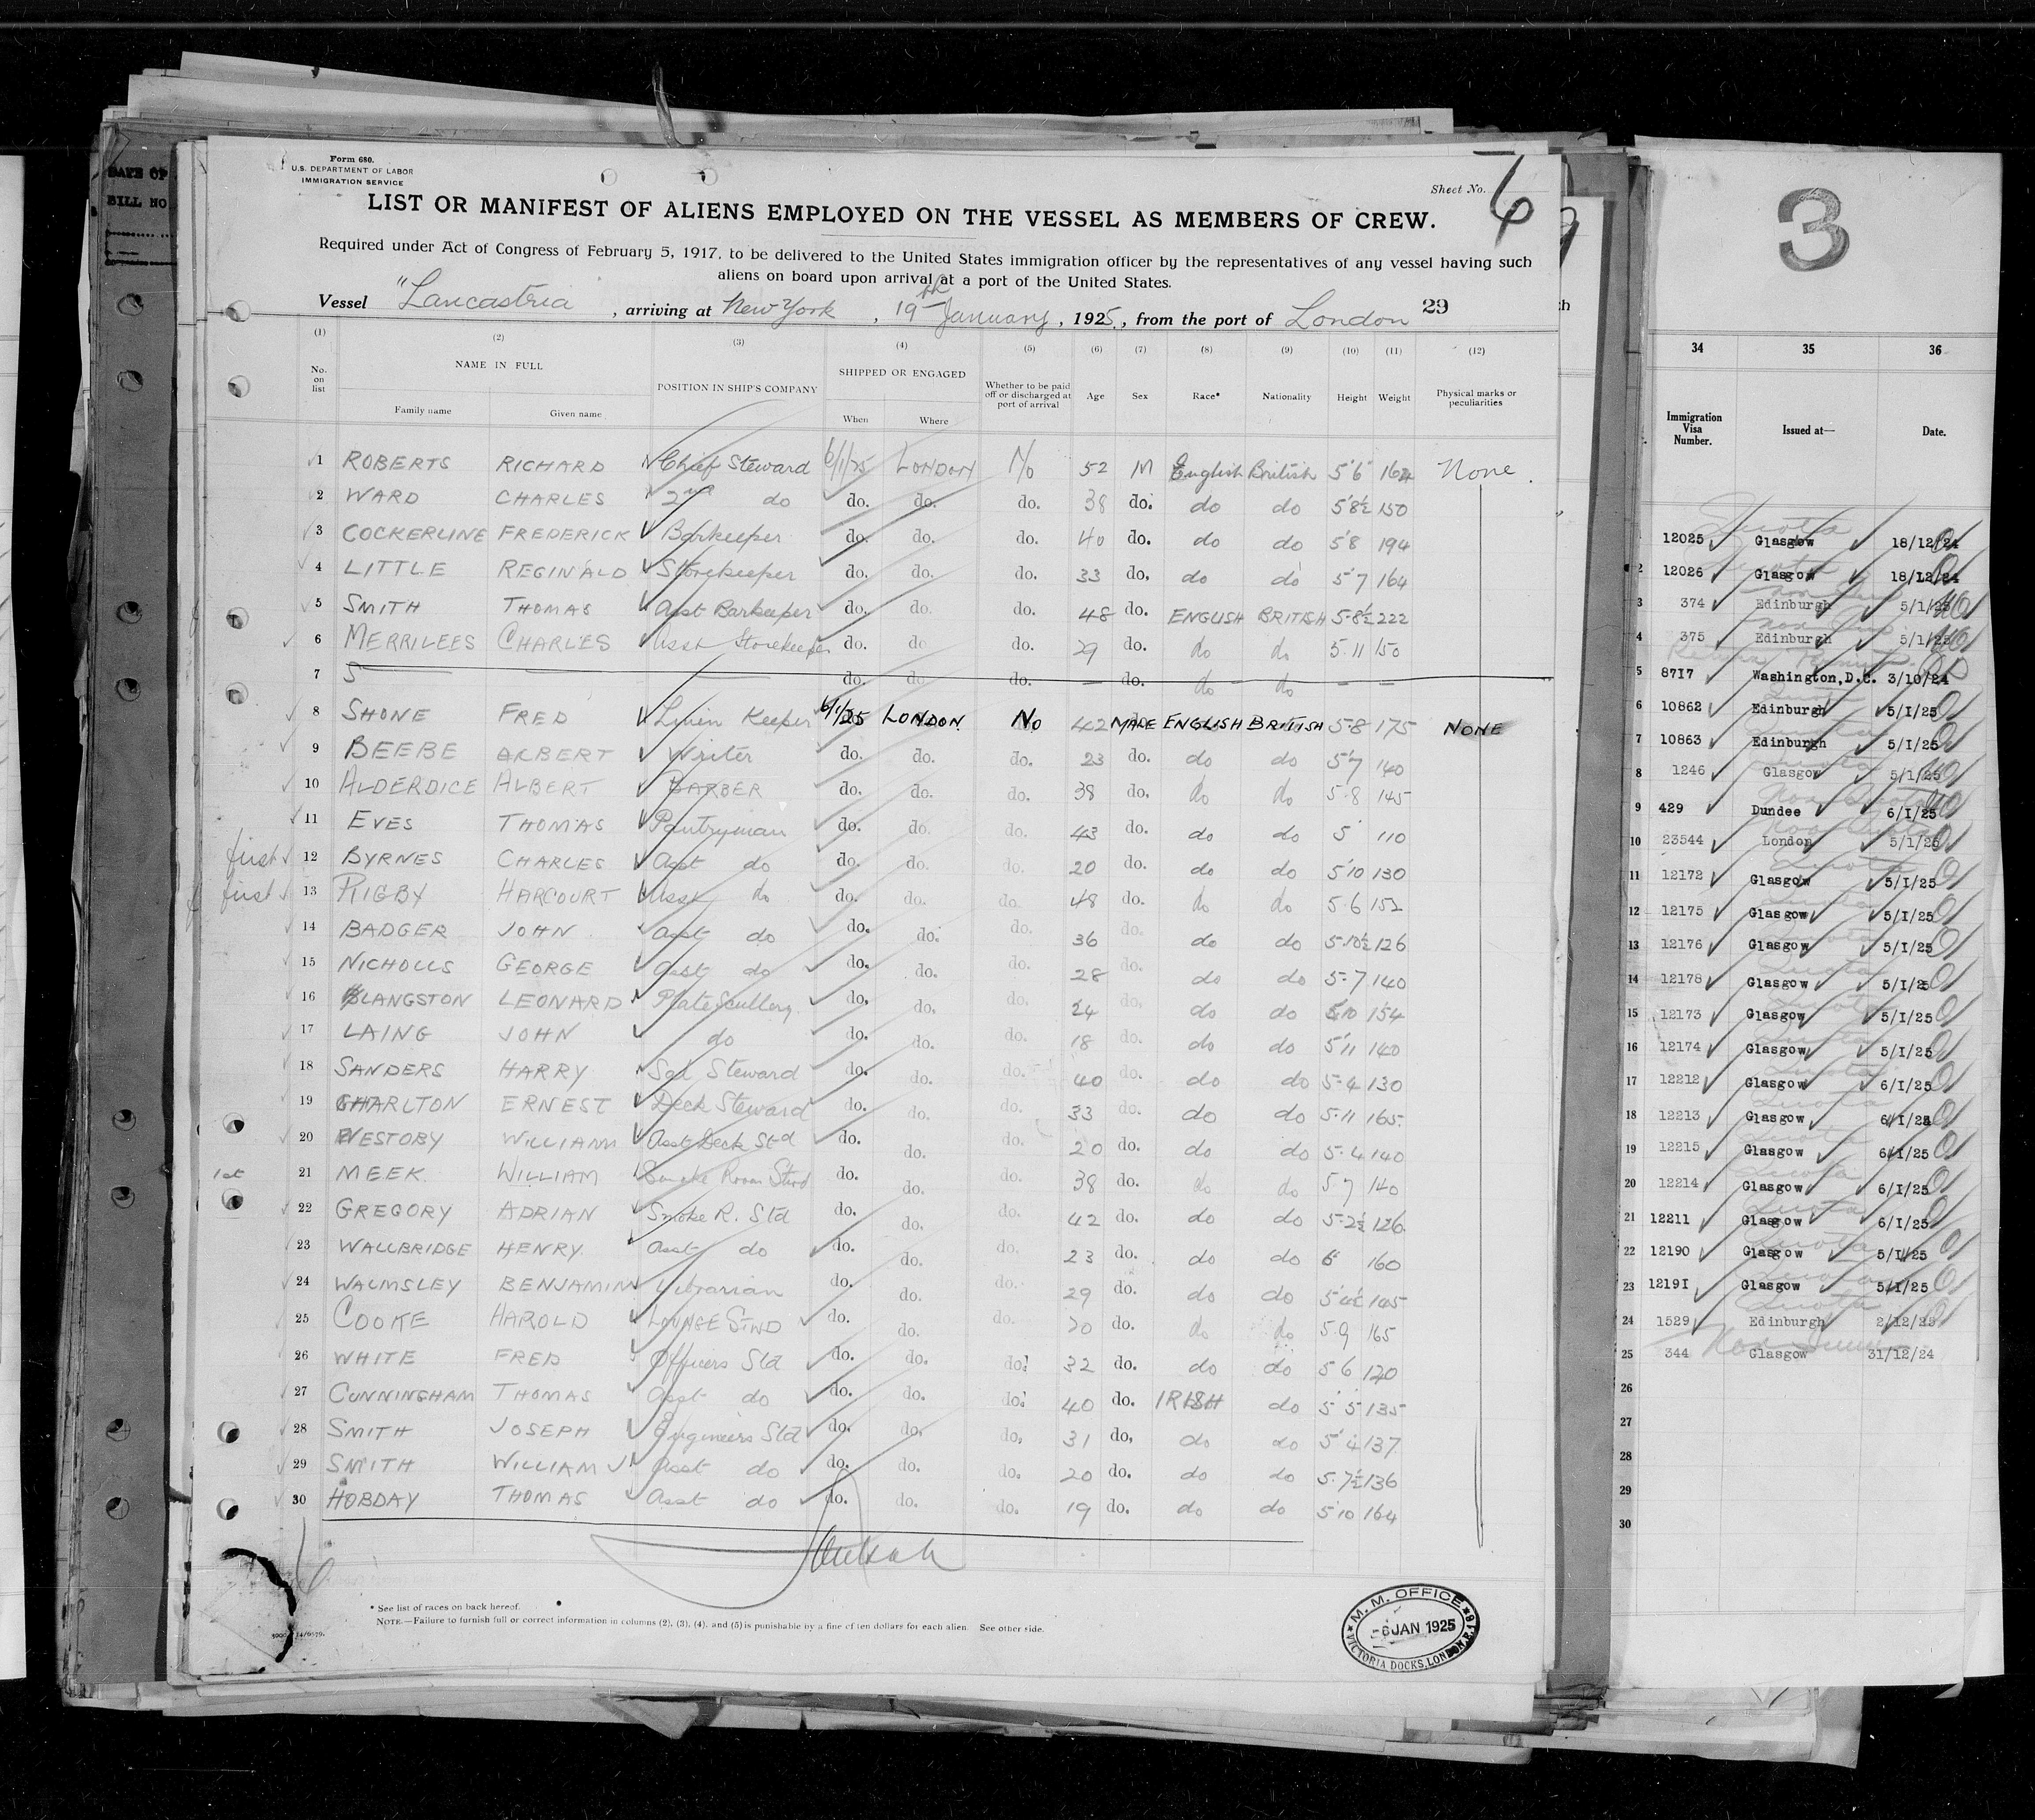 DATE OF
BILL NO
Form 680.
U.S. DEPARTMENT OF LABOR
IMMIGRATION SERVICE
Sheet No. 6
LIST OR MANIFEST OF ALIENS EMPLOYED ON THE VESSEL AS MEMBERS OF CREW.
Required under Act of Congress of February 5, 1917, to be delivered to the United States immigration officer by the representatives of any vessel having such
aliens on board upon arrival at a port of the United States.
Vessel "Lancastria , arriving at New York , 19th January , 1925, from the port of London 29
(1) (2) (3) (4) (5) (6) (7) (8) (9) (10) (11) (12)
No. on list NAME IN FULL POSITION IN SHIP'S COMPANY SHIPPED OR ENGAGED Whether to be paid off or discharged at port of arrival Age Sex Race* Nationality Height Weight Physical marks or peculiarities
Family name Given name When Where
1 ROBERTS RICHARD Chief Steward 6/1/25 LONDON No 52 M English British 5'6 164 None.
2 WARD CHARLES 2nd do do. do. do. 38 do. do do 5'8½ 150
3 COCKERLINE FREDERICK Barkeeper do. do. do. 40 do. do do 5'8 194
4 LITTLE REGINALD Storekeeper do. do. do. 33 do. do do 5'7 164
5 SMITH THOMAS Asst Barkeeper do. do. do. 48 do. ENGLISH BRITISH 5-8½ 222
6 MERRILEES CHARLES Asst Storekeeper do. do do. 29 do. do do 5.11 150
7 S do. do do. — do. do do — —
8 SHONE FRED Linen Keeper 6/1/25 LONDON. No 42 MALE ENGLISH BRITISH 5-8 175 NONE
9 BEEBE ALBERT Writer do. do. do. 23 do. do do 5'7 140
10 ALDERDICE ALBERT BARBER do. do. do. 38 do. do do 5.8 145
11 EVES THOMAS Pantryman do. do. do. 43 do. do do 5' 110
first 12 BYRNES CHARLES Asst do do. do. do. 20 do. do do 5'10 130
first 13 RIGBY HARCOURT Asst do do. do. do 48 do. do do 5.6 152
14 BADGER JOHN Asst do do. do. do. 36 do. do do 5-10½ 126
15 NICHOLLS GEORGE Asst do do. do. do. 28 do. do do 5-7 140
16 LANGSTON LEONARD Plate Scullery do. do. do. 24 do. do do 5.10 154
17 LAING JOHN do do. do. do. 18 do. do do 5'11 140
18 SANDERS HARRY Sal Steward do. do. do. 40 do. do do 5-4 130
19 CHARLTON ERNEST Deck Steward do. do. do. 33 do. do do 5-11 165.
20 WESTOBY WILLIAM Asst Deck Std do. do. do. 20 do. do do 5-4 140
1st 21 MEEK. WILLIAM Smoke Room Stwd do. do. do. 38 do. do do 5 7 140
22 GREGORY ADRIAN Smoke R. Std do. do. do. 42 do. do do 5-2½ 126.
23 WALLBRIDGE HENRY. Asst do do. do. do. 23 do. do do 6' 160
24 WALMSLEY BENJAMIN Librarian do. do. do. 29 do. do do 5'4½ 145
25 COOKE HAROLD LOUNGE STWD do. do. do. 20 do. do do 5.9 165
26 WHITE FRED Officers Std do. do. do. 32 do. do do 5 6 120
27 CUNNINGHAM THOMAS Asst do do. do. do. 40 do. IRISH do 5'5 135
28 SMITH JOSEPH Engineers Std do. do. do. 31 do. do do 5'4 137
29 SMITH WILLIAM J Asst do do. do. do. 20 do. do do 5.7½ 136
30 HOBDAY THOMAS Asst do do. do. do. 19 do. do do 5'10 164
* See list of races on back hereof.
NOTE.—Failure to furnish full or correct information in columns (2), (3), (4), and (5) is punishable by a fine of ten dollars for each alien. See other side.
M. M. OFFICE
-6 JAN 1925
VICTORIA DOCKS, LONDON, E.16
3
34 35 36
Immigration Visa Number. Issued at— Date.
12025 Glasgow 18/12/24
2 12026 Glasgow 18/12/24
3 374 Edinburgh 5/1/25
4 375 Edinburgh 5/1/25
5 8717 Washington, D.C. 3/10/24
6 10862 Edinburgh 5/1/25
7 10863 Edinburgh 5/1/25
8 1246 Glasgow 5/1/25
9 429 Dundee 6/1/25
10 23544 London 5/1/25
11 12172 Glasgow 5/1/25
12 12175 Glasgow 5/1/25
13 12176 Glasgow 5/1/25
14 12178 Glasgow 5/1/25
15 12173 Glasgow 5/1/25
16 12174 Glasgow 5/1/25
17 12212 Glasgow 6/1/25
18 12213 Glasgow 6/1/25
19 12215 Glasgow 6/1/25
20 12214 Glasgow 6/1/25
21 12211 Glasgow 6/1/25
22 12190 Glasgow 5/1/25
23 12191 Glasgow 5/1/25
24 1529 Edinburgh 2/12/25
25 344 Glasgow 31/12/24
26
27
28
29
30